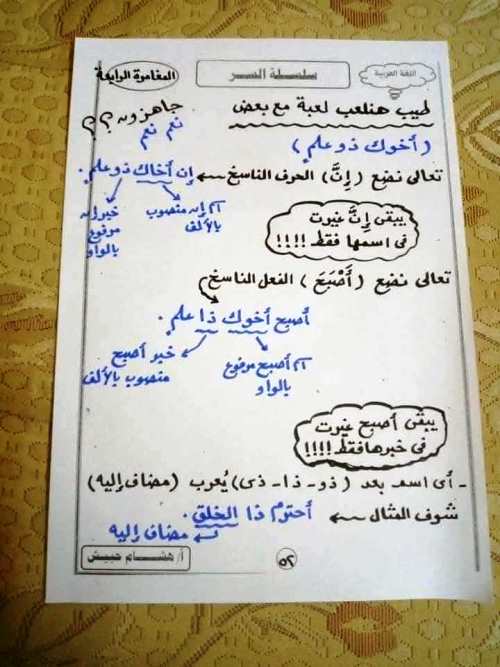 اللغة العربية
سلسلة السر
المغامرة الرابعة
طيب هنلعب لعبة مع بعض
جاهزون ؟ ؟
نعم نعم
( أخوك ذو علمٍ )
تعالى نضع ( إنَّ ) الحرف الناسخ ← إن أخاك ذو علمٍ .
اسم إن منصوب بالألف
خبر إن مرفوع بالواو
يبقى إنَّ غيرت
فى اسمها فقط !!!!
تعالى نضع ( أَصْبَحَ ) الفعل الناسخ
أصبح أخوك ذا علمٍ .
اسم أصبح مرفوع بالواو
خبر أصبح منصوب بالألف
يبقى أصبح غيرت
فى خبرها فقط !!!!
- أى اسم بعد ( ذو - ذا - ذى ) يُعرب ( مضاف إليه )
شوف المثال ← أحترمُ ذا الخلقِ .
مضاف إليه
٥٢
أ/ هشام حبيش